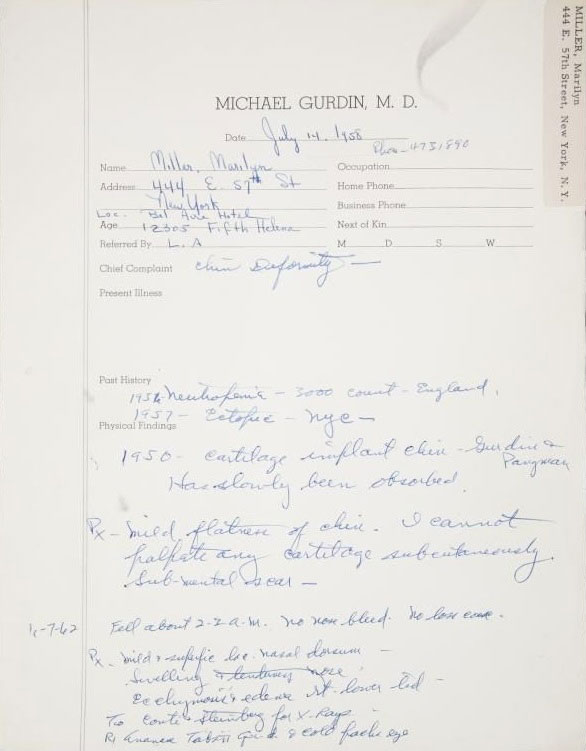 MILLER, Marilyn
444 E. 57th Street, New York, N. Y.
MICHAEL GURDIN, M. D.
Date July 14, 1958
Phone - 4731890
Name Miller, Marilyn
Occupation
Address 444 E. 57th St
Home Phone
New York
Business Phone
Loc. Hotel
Age 12305 Fifth Helena
Next of Kin
Referred By L. A
M D S W
Chief Complaint chin Deformity —
Present Illness
Past History
1956 - Neutropenia - 3000 count - England.
1957 - Ectopic - NYC -
Physical Findings
1950 - cartilage implant chin - Gurdin &
Pangman
Has slowly been absorbed.
Px - mild flatness of chin. I cannot
palpate any cartilage subcutaneously.
Sub-mental scar -
6-7-62 Fell about 2-2 a.m. No nose bleed. No loss consc.
Px - mild & superfic lac. nasal dorsum -
Swelling & tenderness nose
Ecchymosis & edema lower lid -
To Conti & Steinberg for X-Rays
Rx Ananase Tabs qid & cold packs eye